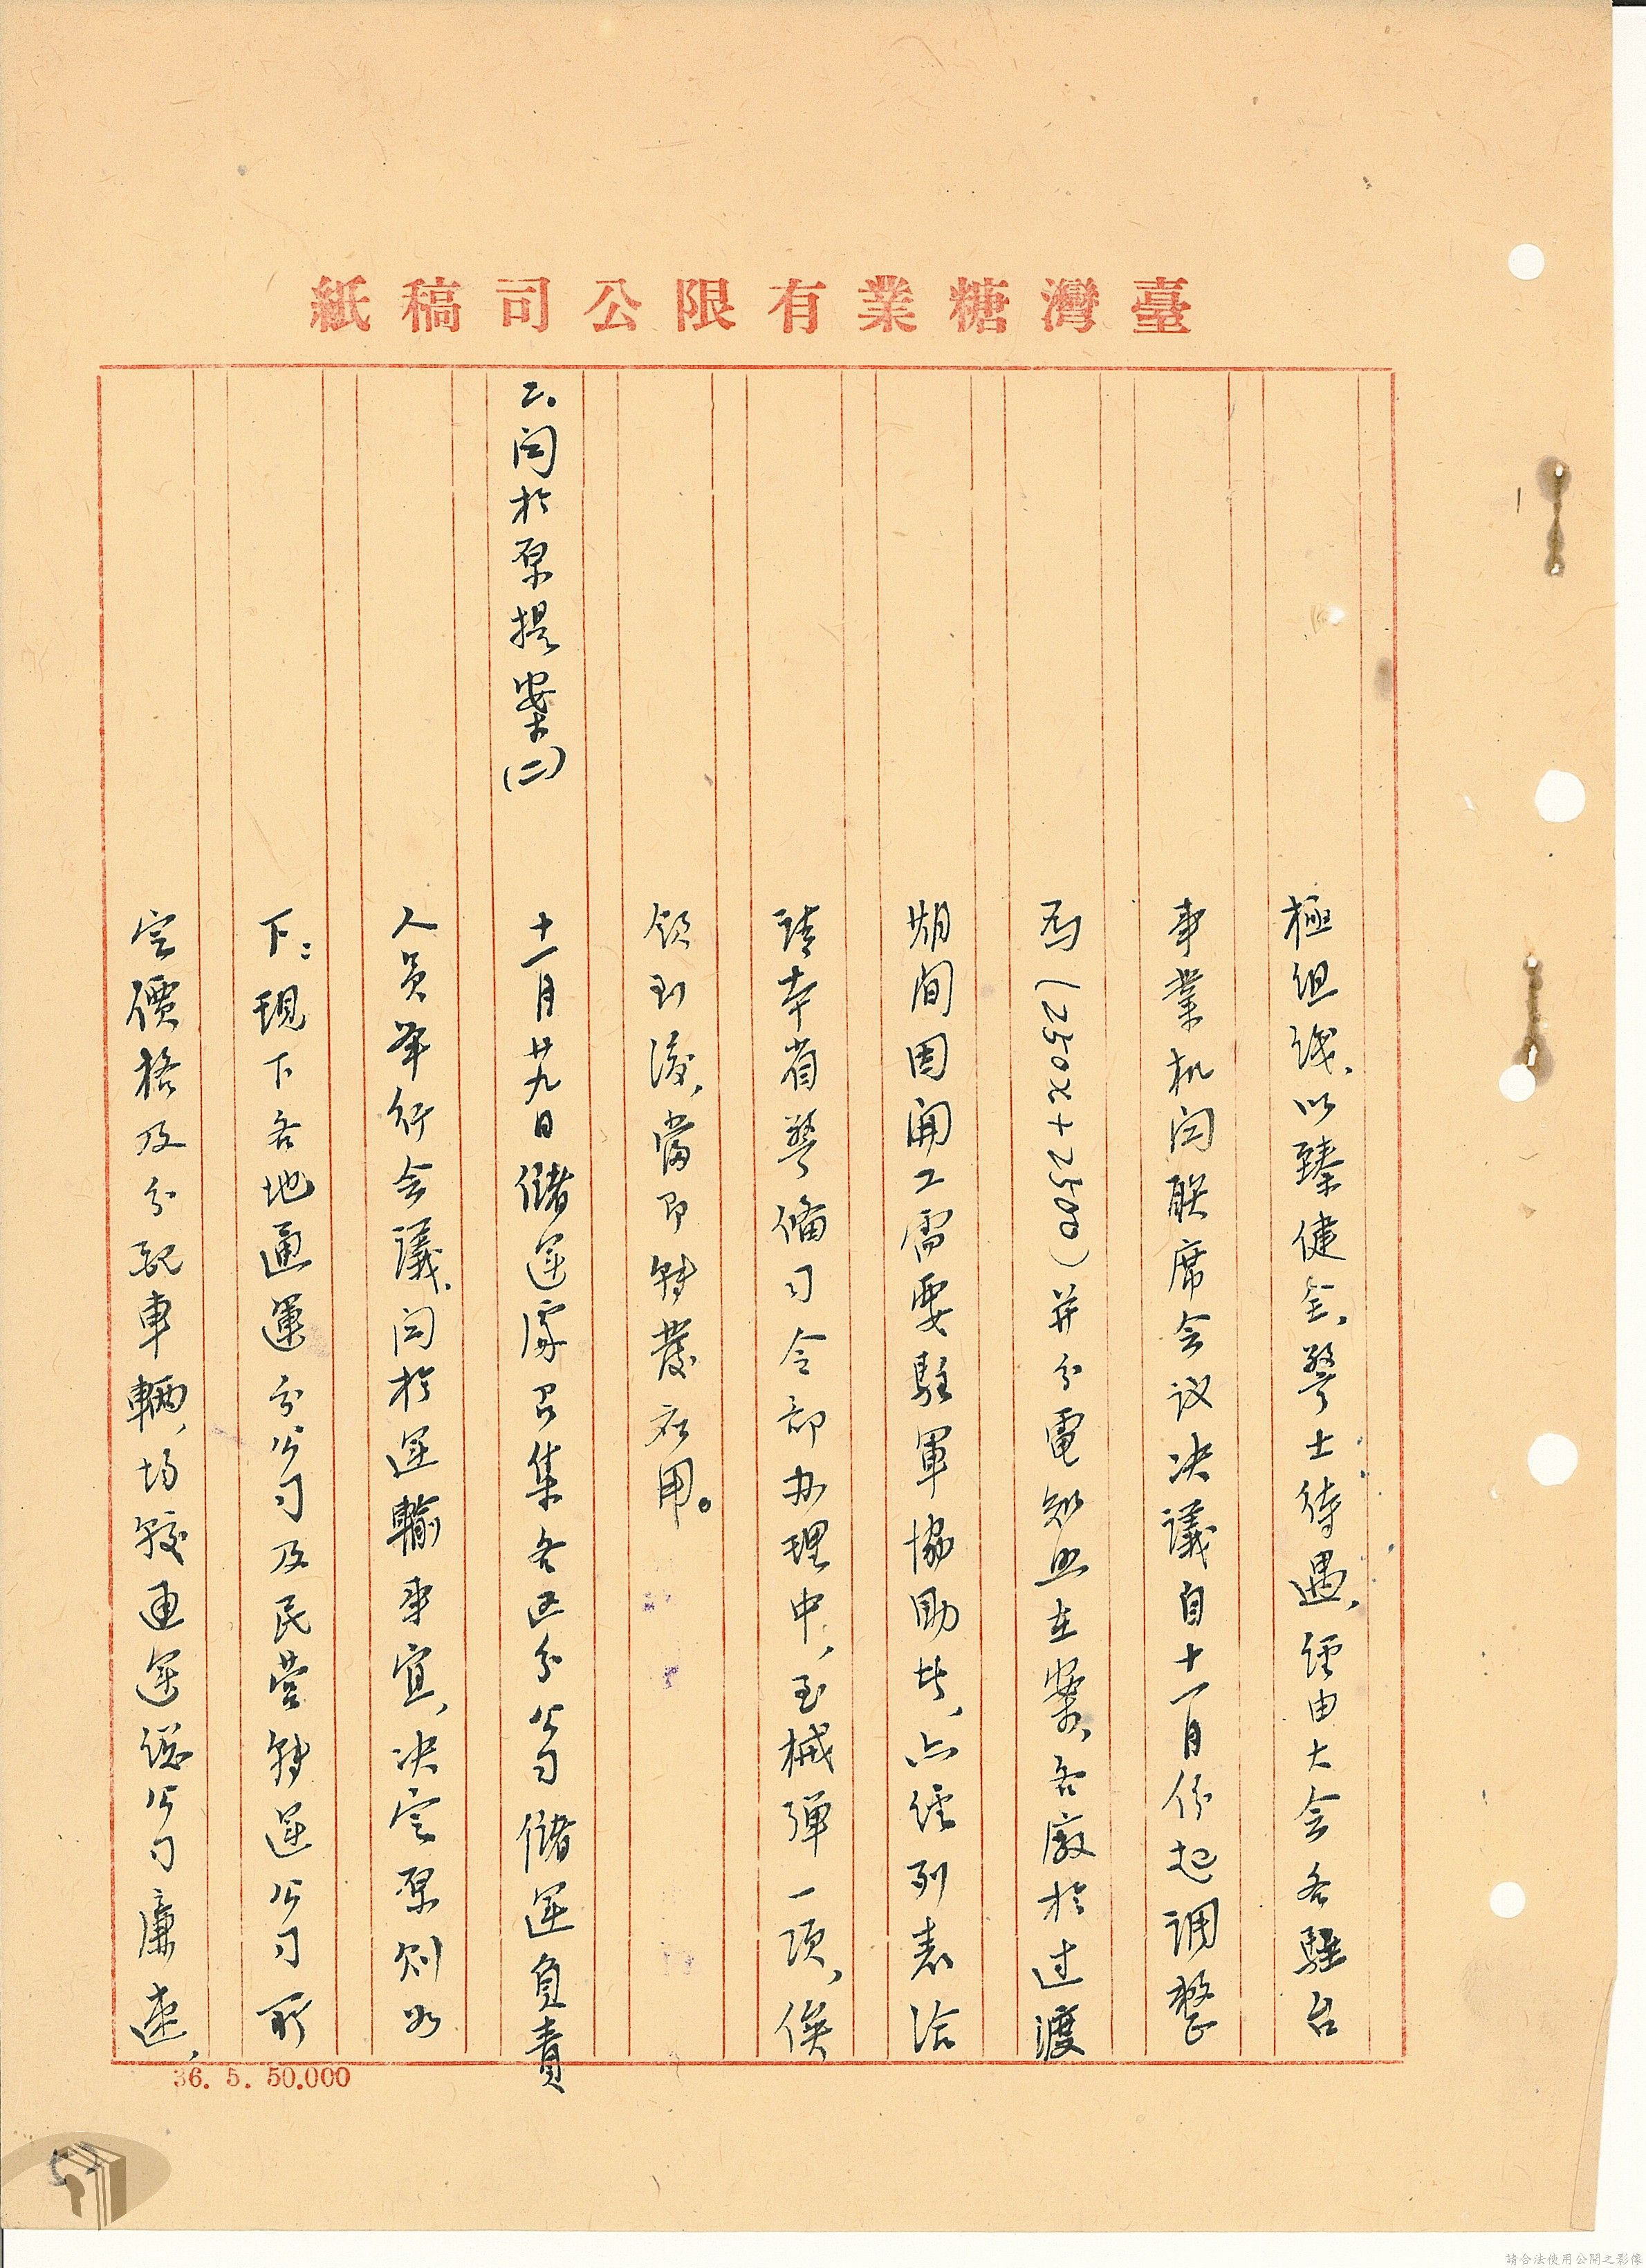 臺灣糖業有限公司稿紙
極組織、以臻健全、警士待遇、經由大会各駐台
事業机関联席会议决議自十一月份起調整
為(250%+2500)并分電知照在案、各廠於过渡
期间因開工需要駐軍協助者、亦經列表洽
請本省警備司令部办理中、至械彈一項、俟
領到後、當即轉發應用。
二。関於原提案(二)
十一月廿九日儲运處召集各区分公司儲运負責
人員举行会議、関於运輸事宜、决定原则如
下:現下各地通運分公司及民营轉运公司所
定價格及分配車輛、均較通运總公司廉速、
36. 5. 50.000
請合法使用公開之影像